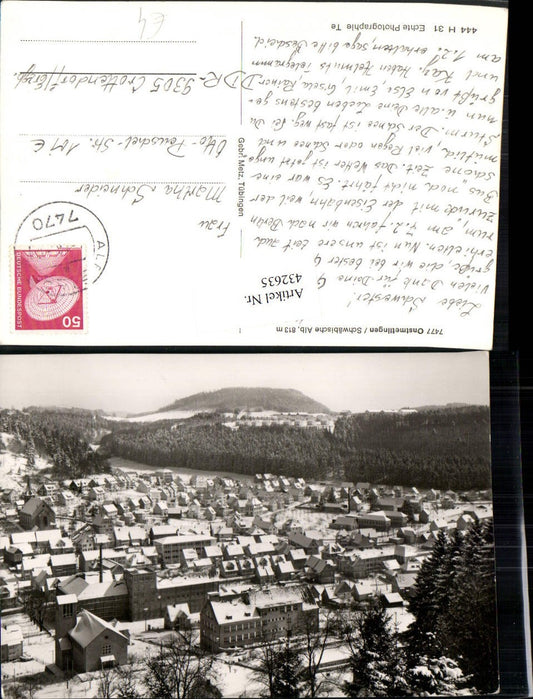 7477 Onstmettingen / Schwäbische Alb, 813 m
Liebe Schwester!
Vielen Dank für Deine
Grüße, die wir bei bester G
erhielten. Nun ist unsere Zeit auch
um am 7.2. fahren wir nach Berlin
zurück mit der Eisenbahn weil der
Bus noch nicht fährt. Es war eine
schöne Zeit. Das Wetter ist jetzt unge
mütlich, viel Regen oder Schnee und
Sturm. Der Schnee ist fast weg. Sei Du
nun u. alle Deine Lieben bestens ge-
grüßt von Elsi Emil Gisela, Rainer
und Kas. Haben Helmuts Telegramm
am 1.2. erhalten, sage bitte Bescheid.
Gebr. Metz, Tübingen
444 H 31 Echte Photographie Te
DEUTSCHE BUNDESPOST
50
7470
ALB
Frau
Martha Schneider
Otto-Peuschel-Str. 101 E
DDR-9305 Crottendorf/Erzg.
E4
Artikel Nr.
432635